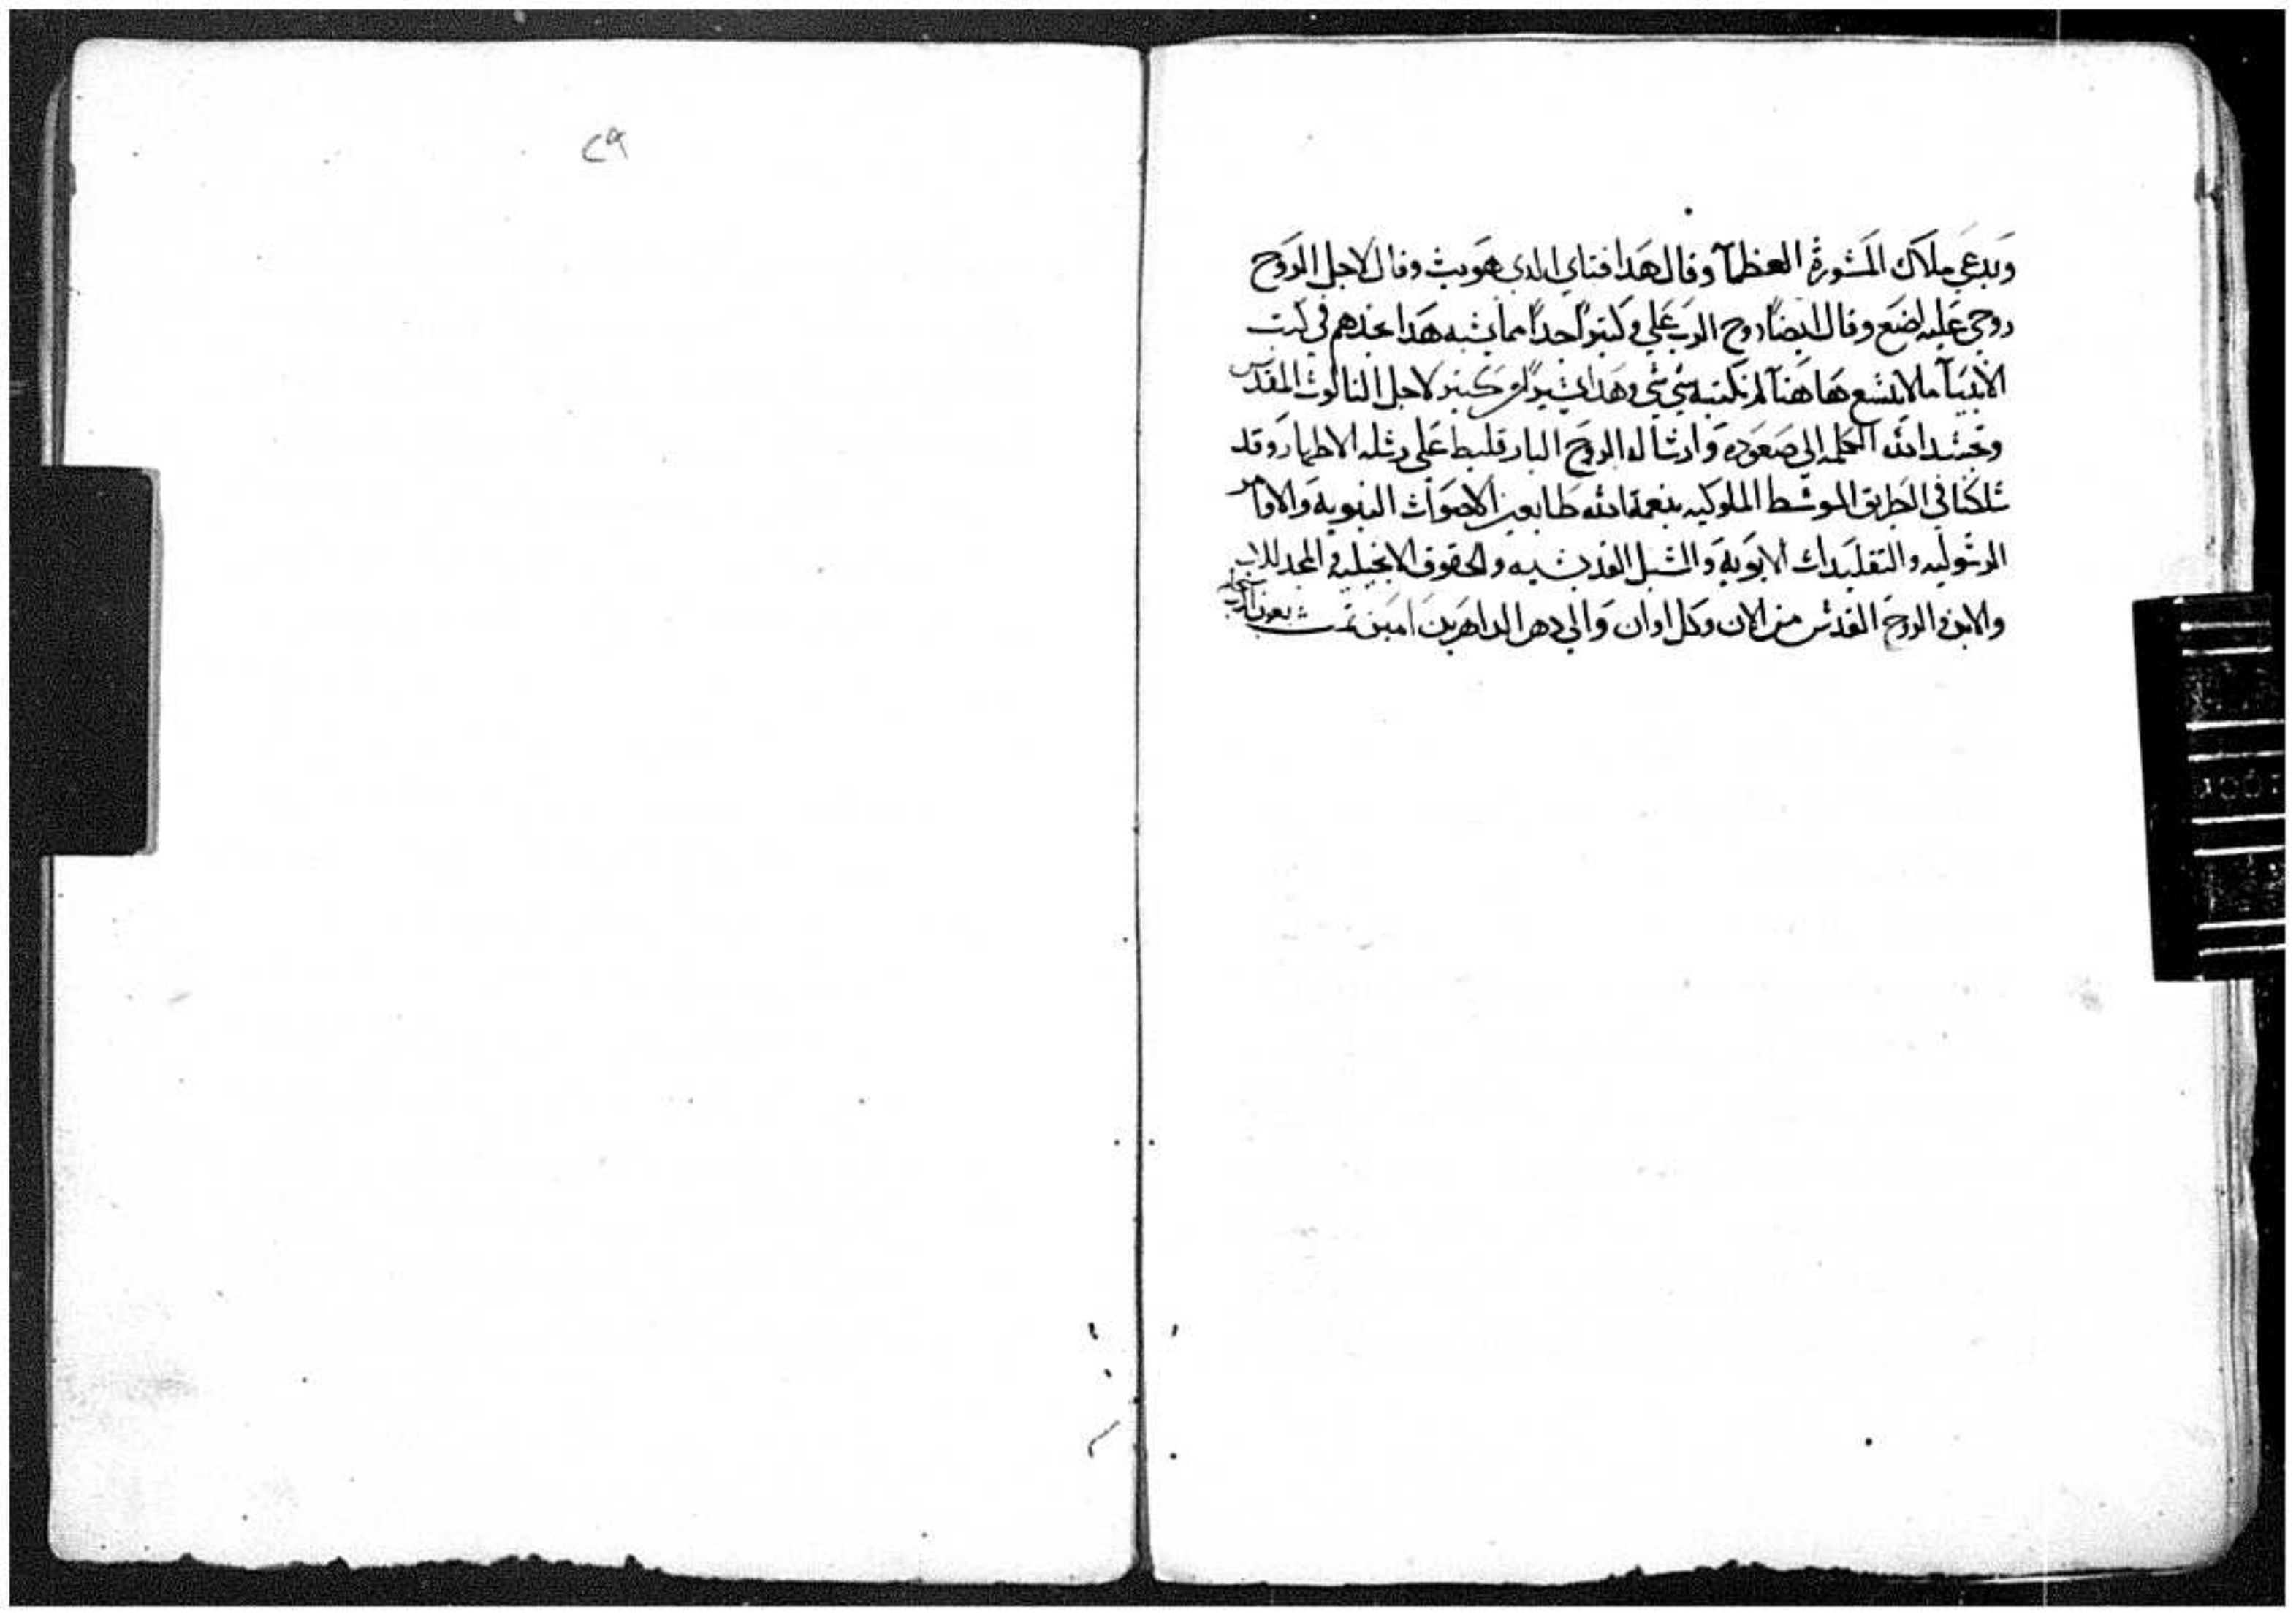 ويدعي ملاك المشورة العظمآ وقال هدا فتاي الدي هويت وقال لاجل الروح
روحي عليه اضع وقال ايضًا روح الرب علي وكتير جدًا مما يشبه هدا تجدهم في كتب
الانبيآ ما لا يتسع هاهنآ لم نكتبه وهدا كتير لاجل التالوت المقدس
وتجسد الله الكلمه الي صعوده وارساله الروح البارقليط علي رسله الاطهار وقد
سلكنا في الطريق الموسط الملوكيه بنعمة الله طايعين الاصوات النبويه والاوامر
الرسوليه والتقليدات الابويه والسبل القديسيه والحقوق الانجيليه المجد للاب
والابن والروح القدس من الان وكل اوان والي دهر الداهرين امين تمت بعون الرب
٢٩